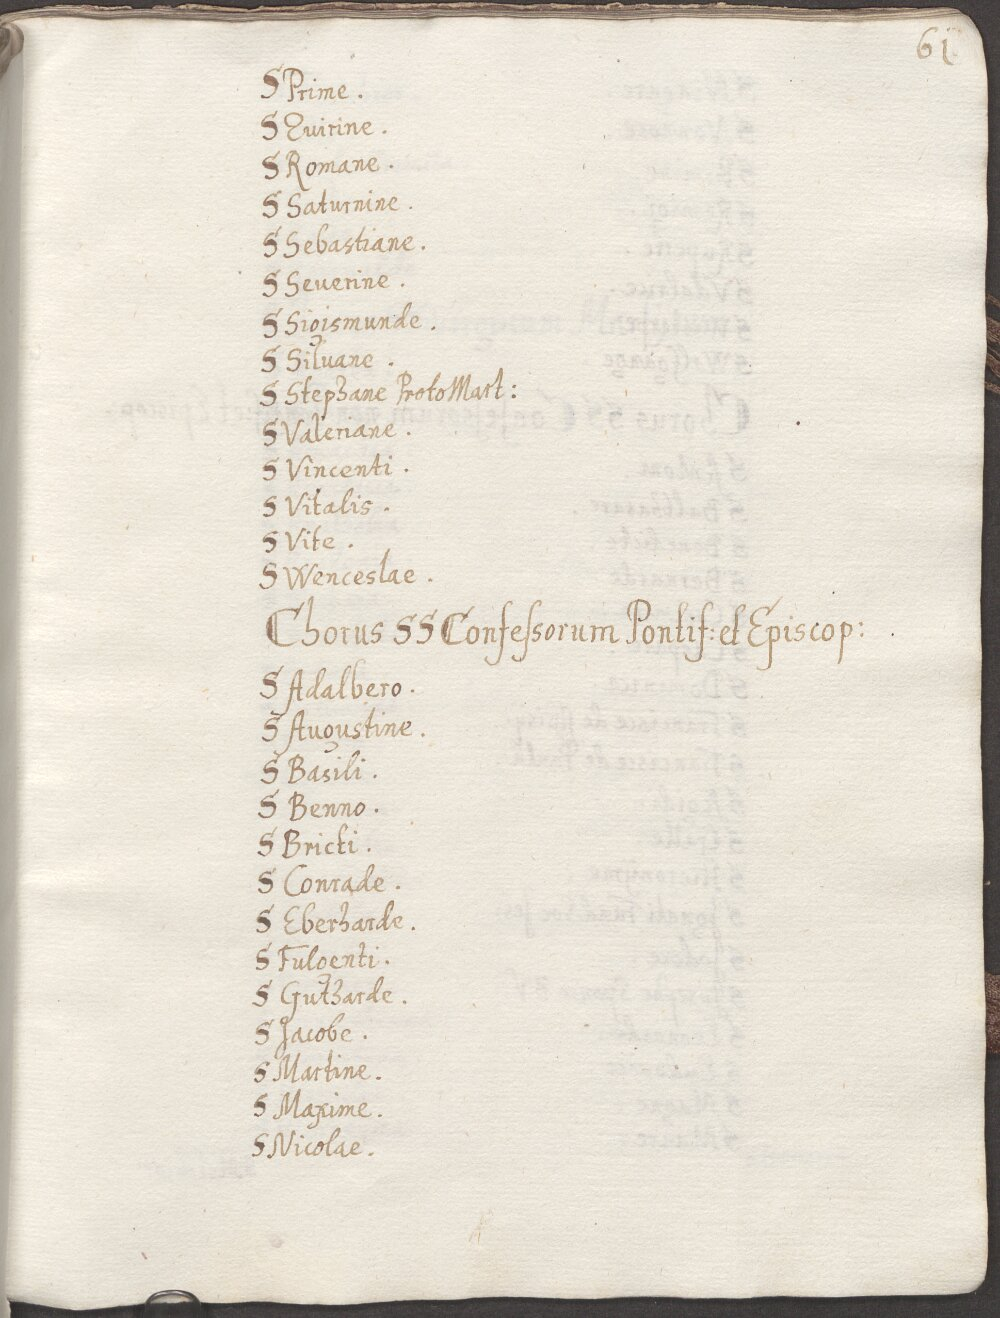 61
S Prime .
S Quirine .
S Romane .
S Saturnine .
S Sebastiane .
S Seuerine .
S Sigismunde .
S Siluane .
S Stephane ProtoMart :
S Valeriane .
S Vincenti .
S Vitalis .
S Vite .
S Wenceslae .
Chorus SS Confessorum Pontif: et Episcop: .
S Adalbero .
S Augustine .
S Basili .
S Benno .
S Bricti .
S Conrade .
S Eberharde .
S Fulgenti .
S Gutharde .
S Jacobe .
S Martine .
S Maxime .
S Nicolae .